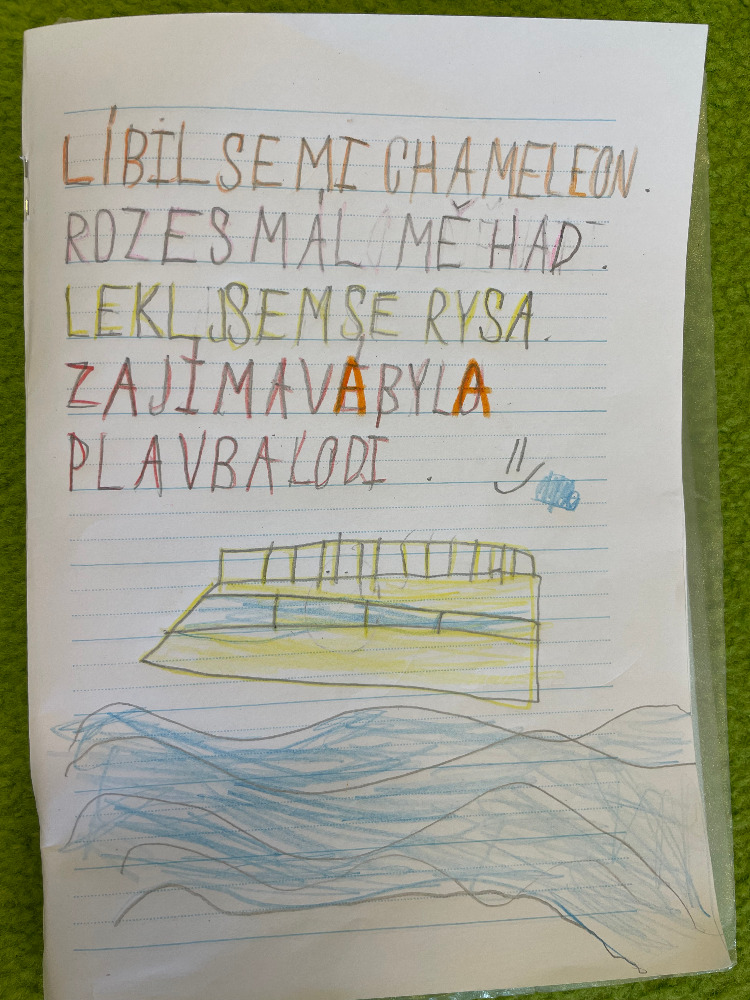 LÍBIL SE MI CHAMELEON.
ROZESMÁL MĚ HAD.
LEKL JSEM SE RYSA.
ZAJÍMAVÁ BYLA
PLAVBA LODI.